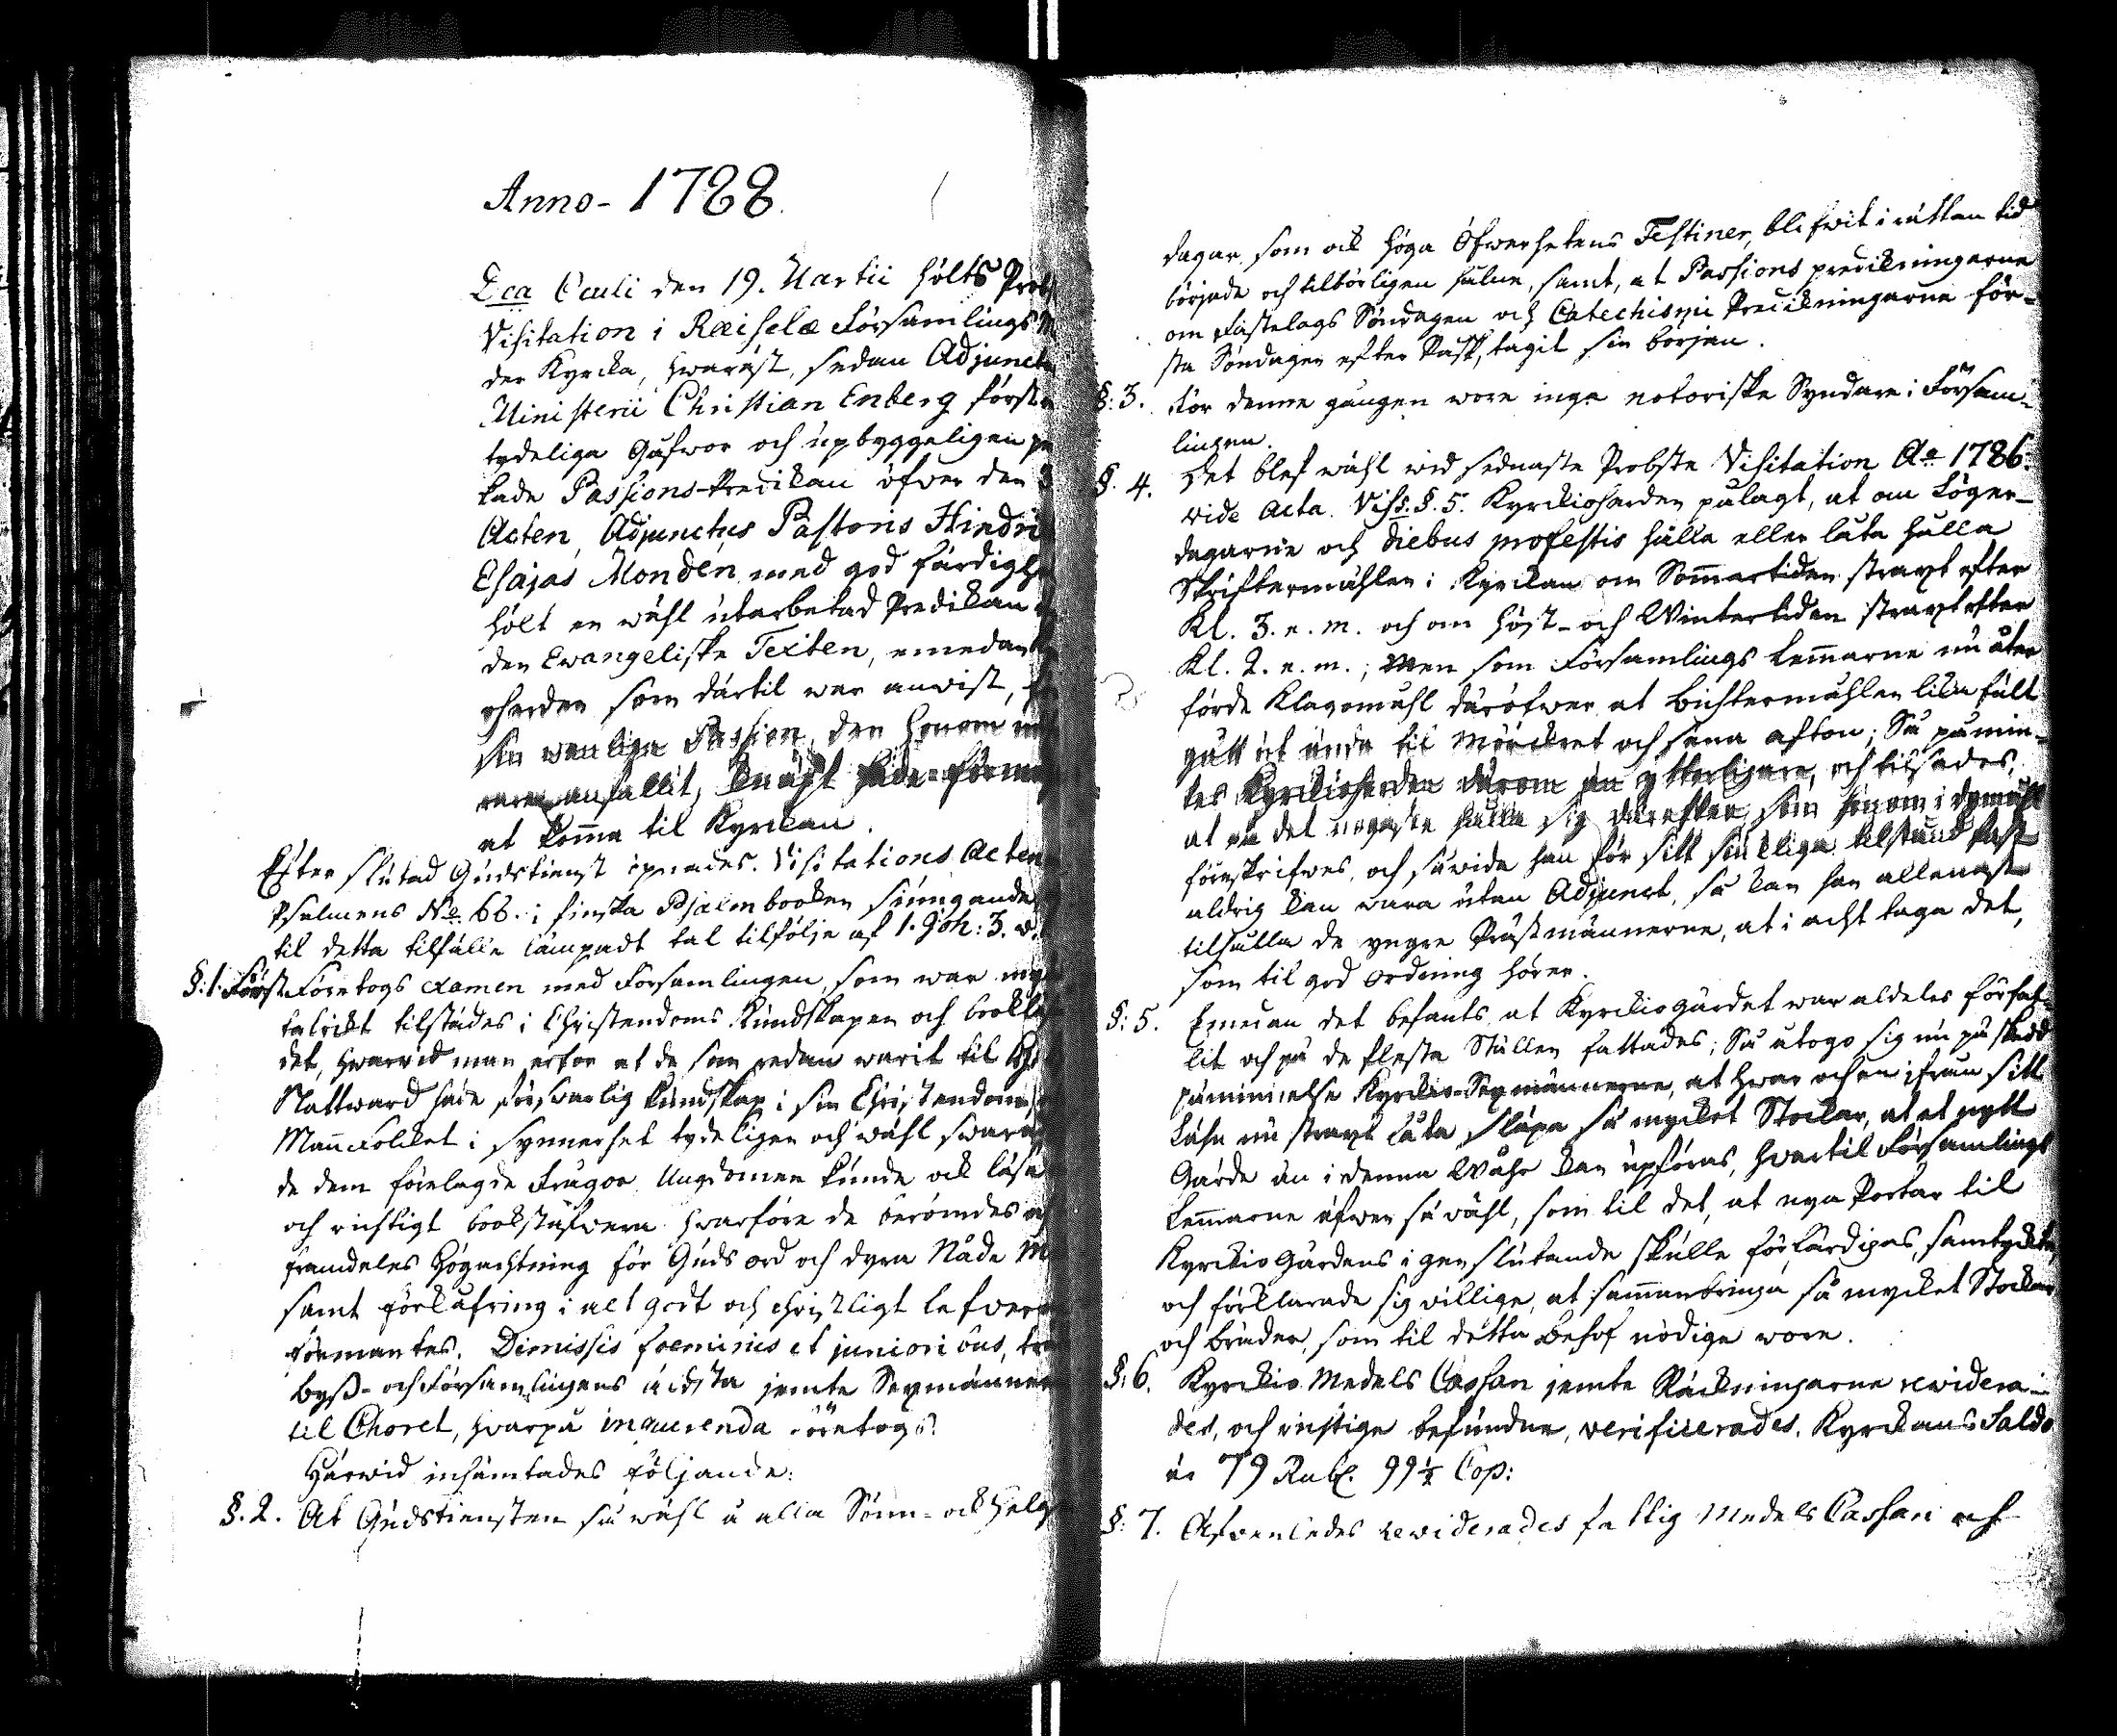 Anno - 1788.
Dca Oculi den 19. Martii hölts Prob
Visitation i Reeiselæ Församlings M
der Kyrcka, hwaräst, sedan Adjunctu
Ministerii Christian Enberg först
tydeliga Gåfwor och upbyggeligen pr
kade Passions-Predikan öfwer den
Acten, Adjunctus Pastoris Hindri
Esajas Mondén, med god färdighe
hölt en wähl utarbetad Predikan
den Ewangeliske Texten, emedan
oherden som därtil war anwist,
sin wanliga Passion, den honom
anfallit, knapt hade förmå
at komma til Kyrckan.
Efter slutad Gudstienst öpnades Visitations Acten
Psalmens No. 66. i finska Psalmbooken siungande
til detta tilfälle lämpadt tal tilfölje af 1. Joh: 3. v.
§: 1. Först Företogs examen med Församlingen, som war my
talrickt tilstädes i Christendoms Kundskapen och book
det, hwarwid man erfor at de som redan warit til H
Nattward hade försvarlig kundskap i sin Christendom,
MannFolcket i synnerhet tydeligen och wähl swara
de dem förelagde Frågor. Ungdomen kunde ock läsa
och richtigt bookstafwera hwarföre de berömdes och
framdeles Högachtning för Guds ord och dyra Nåde M
samt förkåfring i alt godt och christligt lefwerne
förmantes. Dimissis foeminis et junioribus, trä
byss- och Församlingens äldsta jemte Sexmänner
til Choret, hwarpå inquirenda företogs.
Härwid inhämtades följande:
§. 2. At Gudstiensten så wähl å alla Sönn- ock Helge
dagar, som ock Höga Öfwerhetens Festiner, blifwit i rättan tid
började och tilbörligen hålne, samt, at Passions predikningarne
om Fastelags Söndagen och Catechismi Predikningarne för-
sta Söndagen efter Påsk, tagit sin början.
§: 3. För denne gången wore inga notoriske Syndare i Församl-
lingen.
§. 4. Det blef wähl wid sednaste Probste Visitation Ao 1786.
vide Acta Viss. §. 5. Kyrckioherden pålagt, at om Löger-
dagarne och diebus profestis hålla eller låta hålla
Skriftermåhlen i Kyrckan om Sommartiden straxt efter
Kl. 3. e. m. och om höst- och Wintertiden straxt efter
Kl. 2. e. m.; Men som Församlings Lemmarne nu åter
förde Klagomåhl däröfwer at bichtermåhlen lika fult
gått ut ända til Mörckret och sena afton; Så påmin-
tes Kyrckioherden därom än ytterligare, och tilsades,
at på det nogaste hålla sig därefter, som honom i
föreskrifwes, och såwida han för sitt siukliga tilstånd
aldrig kan wara utan Adjunct, så kan han allenast
tilhålla de yngre Prästmännerne, at i acht taga det,
som til god ordning hörer.
§: 5. Emedan det befants at Kyrckiogärdet war aldeles förfal-
lit och på de flesta Ställen fattades; Så åtogo sig nu på skedd
påminnelse Kyrckio Sexmännerne, at hwar och en ifrån sitt
Låhn nu straxt låta släpa så mycket Stockar, at et nytt
Gärde än i denna Wåhr kan upföras, hwartil Församlings
Lemmarne äfwen så wähl, som til det, at nya Portar til
Kyrckio Gårdens igenslutande skulle förfärdigas, samtyckte,
och förklarade sig willige, at sammanbringa så mycket Stockar
och bräder, som til detta behof nödige wore.
§: 6. Kyrckio Medels Cassan jemte Räckningarne revidera-
des, och richtige befundne, verificerades. Kyrckans Saldo
är 79 Rubl. 99 1/2 Cop:
§: 7. Äfwenledes reviderades fattig Medels Cassan och